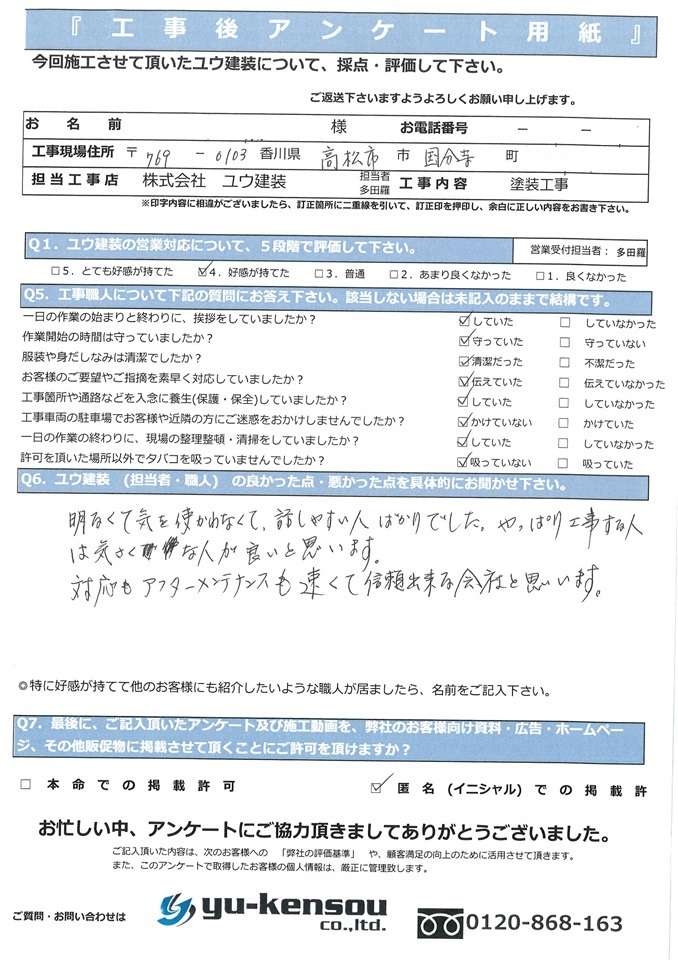 『工事後アンケート用紙』
今回施工させて頂いたユウ建装について、採点・評価して下さい。
ご返送下さいますようよろしくお願い申し上げます。
お名前 様 お電話番号 － －
工事現場住所 〒769－0103 香川県 高松市 市 国分寺 町
担当工事店 株式会社 ユウ建装 担当者 多田羅 工事内容 塗装工事
※印字内容に相違がございましたら、訂正箇所に二重線を引いて、訂正印を押印し、余白に正しい内容をお書き下さい。
Q1．ユウ建装の営業対応について、5段階で評価して下さい。 営業受付担当者：多田羅
□5．とても好感が持てた ☑4．好感が持てた □3．普通 □2．あまり良くなかった □1．良くなかった
Q5．工事職人について下記の質問にお答え下さい。該当しない場合は未記入のままで結構です。
一日の作業の始まりと終わりに、挨拶をしていましたか？ ☑していた □していなかった
作業開始の時間は守っていましたか？ ☑守っていた □守っていない
服装や身だしなみは清潔でしたか？ ☑清潔だった □不潔だった
お客様のご要望やご指摘を素早く対応していましたか？ ☑伝えていた □伝えていなかった
工事箇所や通路などを入念に養生(保護・保全)していましたか？ ☑していた □していなかった
工事車両の駐車場でお客様や近隣の方にご迷惑をおかけしませんでしたか？ ☑かけていない □かけていた
一日の作業の終わりに、現場の整理整頓・清掃をしていましたか？ ☑していた □していなかった
許可を頂いた場所以外でタバコを吸っていませんでしたか？ ☑吸っていない □吸っていた
Q6．ユウ建装 (担当者・職人) の良かった点・悪かった点を具体的にお聞かせ下さい。
明るくて気を使わなくて、話しやすい人ばかりでした。やっぱり工事する人
は気さくな人が良いと思います。
対応もアフターメンテナンスも速くて信頼出来る会社と思います。
◎特に好感が持てて他のお客様にも紹介したいような職人が居ましたら、名前をご記入下さい。
Q7．最後に、ご記入頂いたアンケート及び施工動画を、弊社のお客様向け資料・広告・ホームペー
ジ、その他販促物に掲載させて頂くことにご許可を頂けますか？
□ 本命での掲載許可 ☑ 匿名(イニシャル)での掲載許
お忙しい中、アンケートにご協力頂きましてありがとうございました。
ご記入頂いた内容は、次のお客様への 「弊社の評価基準」 や、顧客満足の向上のために活用させて頂きます。
また、このアンケートで取得したお客様の個人情報は、厳正に管理致します。
ご質問・お問い合わせは yu-kensou co.,ltd. 0120-868-163